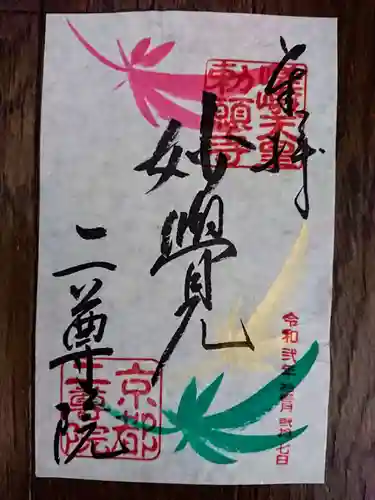 奉拝
嵯峨天皇
勅願寺
妙覺
令和弐年拾壱月弐拾七日
二尊院
京都
二尊院